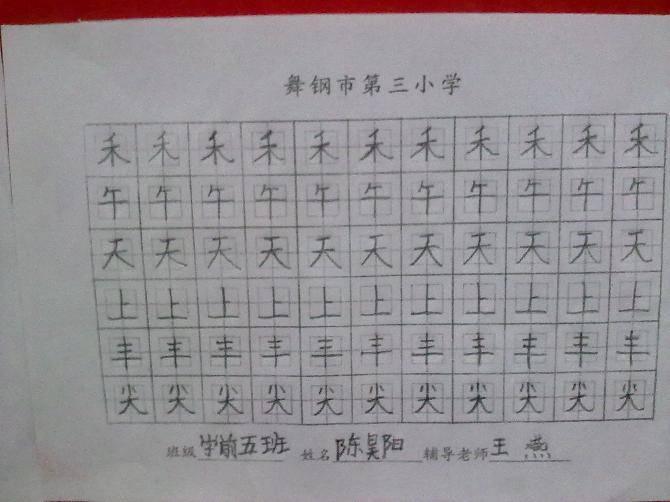 舞钢市第三小学
禾禾禾禾禾禾禾禾禾禾禾
午午午午午午午午午午午
天天天天天天天天天天天
上上上上上上上上上上上
丰丰丰丰丰丰丰丰丰丰丰
尖尖尖尖尖尖尖尖尖尖尖
班级 学前五班 姓名 陈昊阳 辅导老师 王燕